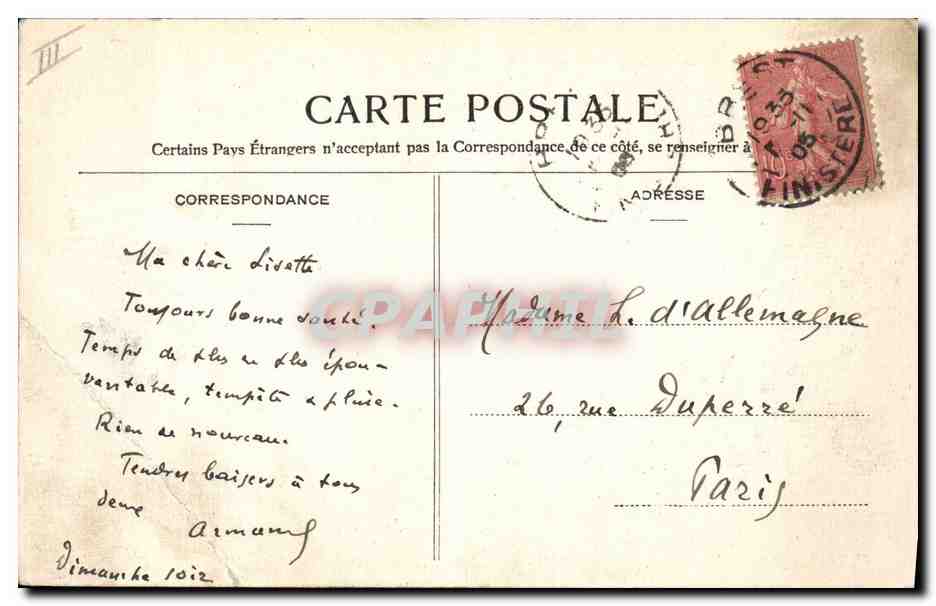 III
CARTE POSTALE
Certains Pays Étrangers n'acceptant pas la Correspondance de ce côté, se renseigner à
CORRESPONDANCE
Ma chère Lisette
Toujours bonne santé.
Temps de plus en plus épou-
vantable, tempête & pluie.
Rien de nouveau.
Tendres baisers à tous
deux Armand
Dimanche soir
ADRESSE
Madame L. d'Allemagne
26, rue Duperré
Paris
BREST
1933
5-11
05
FINISTERE
CPARHIL